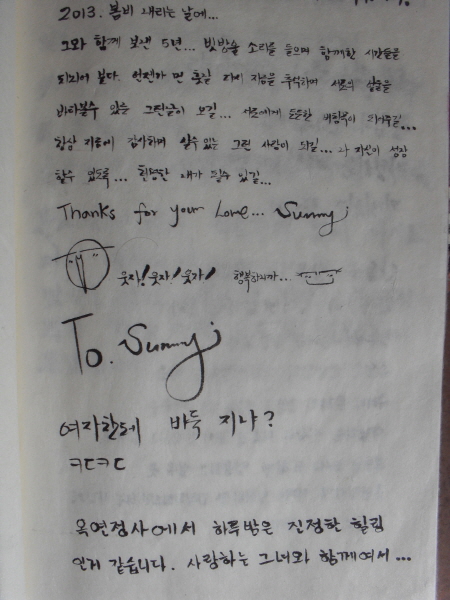 2013. 봄비 내리는 날에...
그와 함께 보낸 5년... 빗방울 소리를 들으며 함께한 시간들을
되뇌어 본다. 언젠가 먼 훗날 다시 지금을 추억하며 서로의 삶을
바라볼수 있는 그런날이 오길... 서로에게 든든한 버팀목이 되어주길...
항상 지금에 감사하며 살수있는 그런 사람이 되길... 나 자신이 성장
할수 있도록... 현명한 내가 될수 있길...
Thanks for your Love... Sunny
웃자! 웃자! 웃자! 행복하니까...
To. Sunny
여자한테 바둑 지냐?
ㅋㄷㅋㄷ
옥연정사에서 하룻밤은 진정한 힐링
인거 같습니다. 사랑하는 그녀와 함께여서...